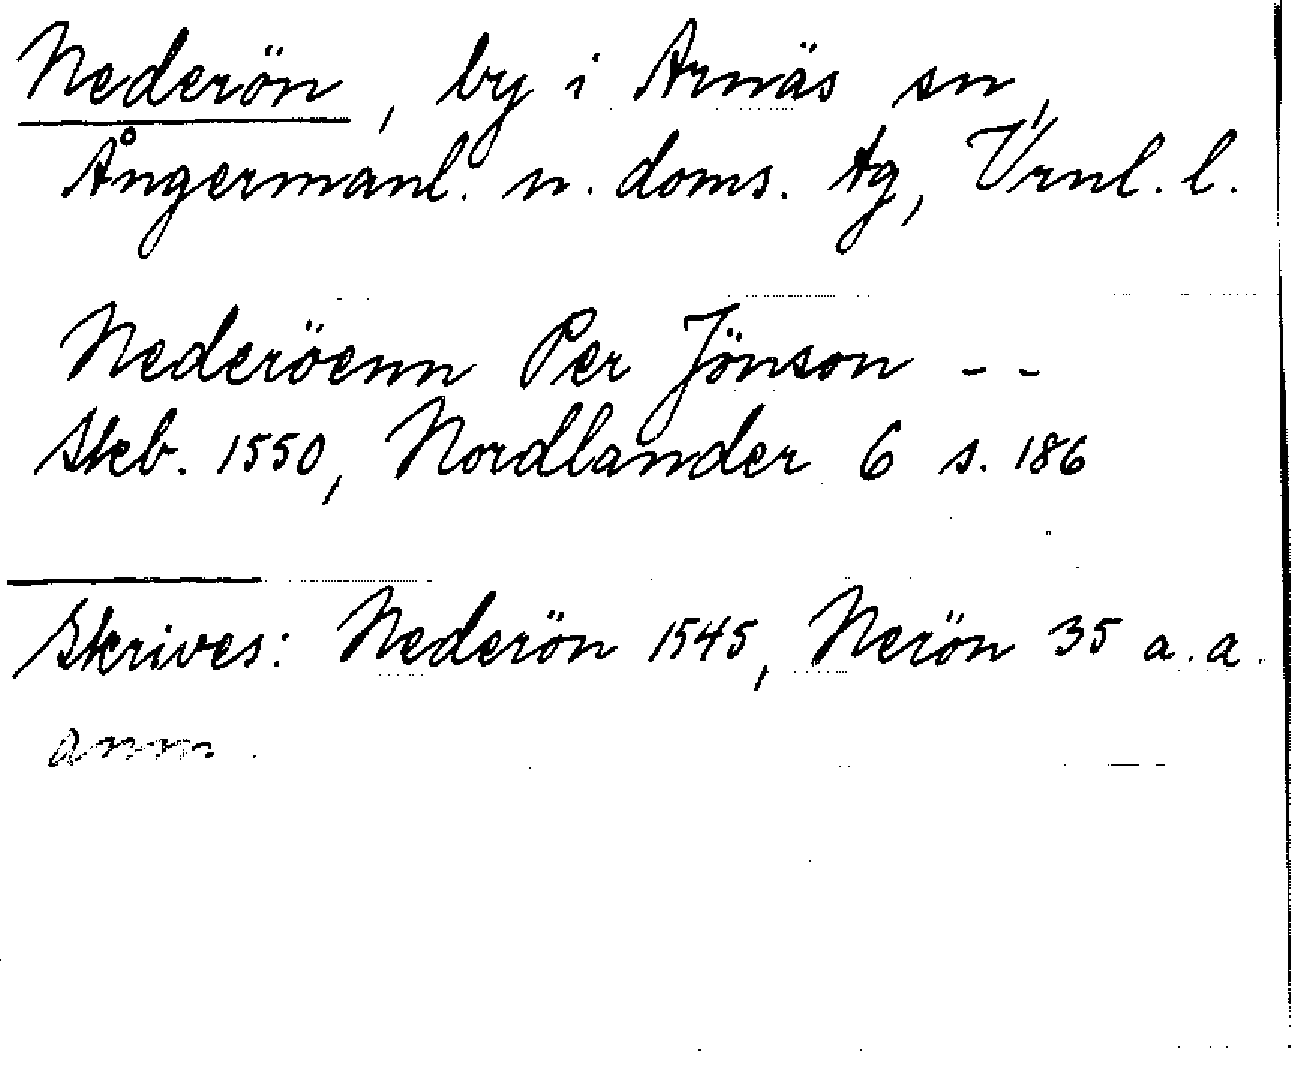 Nederön, by i Arnäs sn,
Ångermanl. n. doms. tg, Vrnl. l.
Nederöenn Per Jönson - -
Skb. 1550, Nordlander 6 s. 186
Skrives: Nederön 1545, Nerön 35 a. a.
anm.